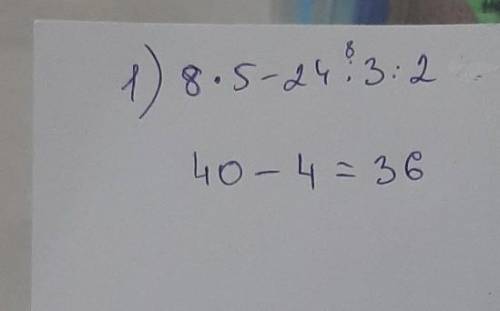 1) 8 · 5 - 24 : 3 : 2
8
40 - 4 = 36